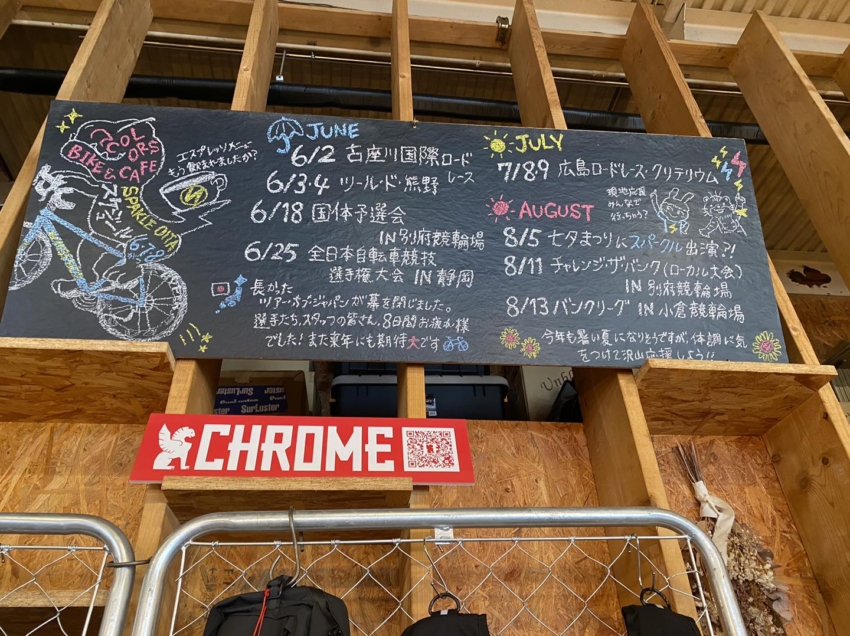 COL
ORS
BIKE & CAFE
エスプレッソオニモ
もう飲まれましたか?
SPAKLE OITA
JUNE
6/2 古座川国際ロード
レース
6/3・4 ツール・ド・熊野
6/18 国体予選会
IN 別府競輪場
6/25 全日本自転車競技
選手権大会 IN 静岡
長かた
ツアー・オブ・ジャパンが幕を閉じました。
選手たち、スタッフの皆さん、8日間お疲れ様
でした! また来年にも期待大です
JULY
7/8.9 広島ロードレース・クリテリウム
現地応援
みんなで
行っちゃう?
AUGUST
8/5 七夕まつりにスパークル出演?!
8/11 チャレンジ・ザ・バンク(ローカル大会)
IN 別府競輪場
8/13 バンクリーグ IN 小倉競輪場
今年も暑い夏になりそうですが、体調に気
をつけて沢山応援しよう!!
SURLUSTER
SURLUSTER
CHROME